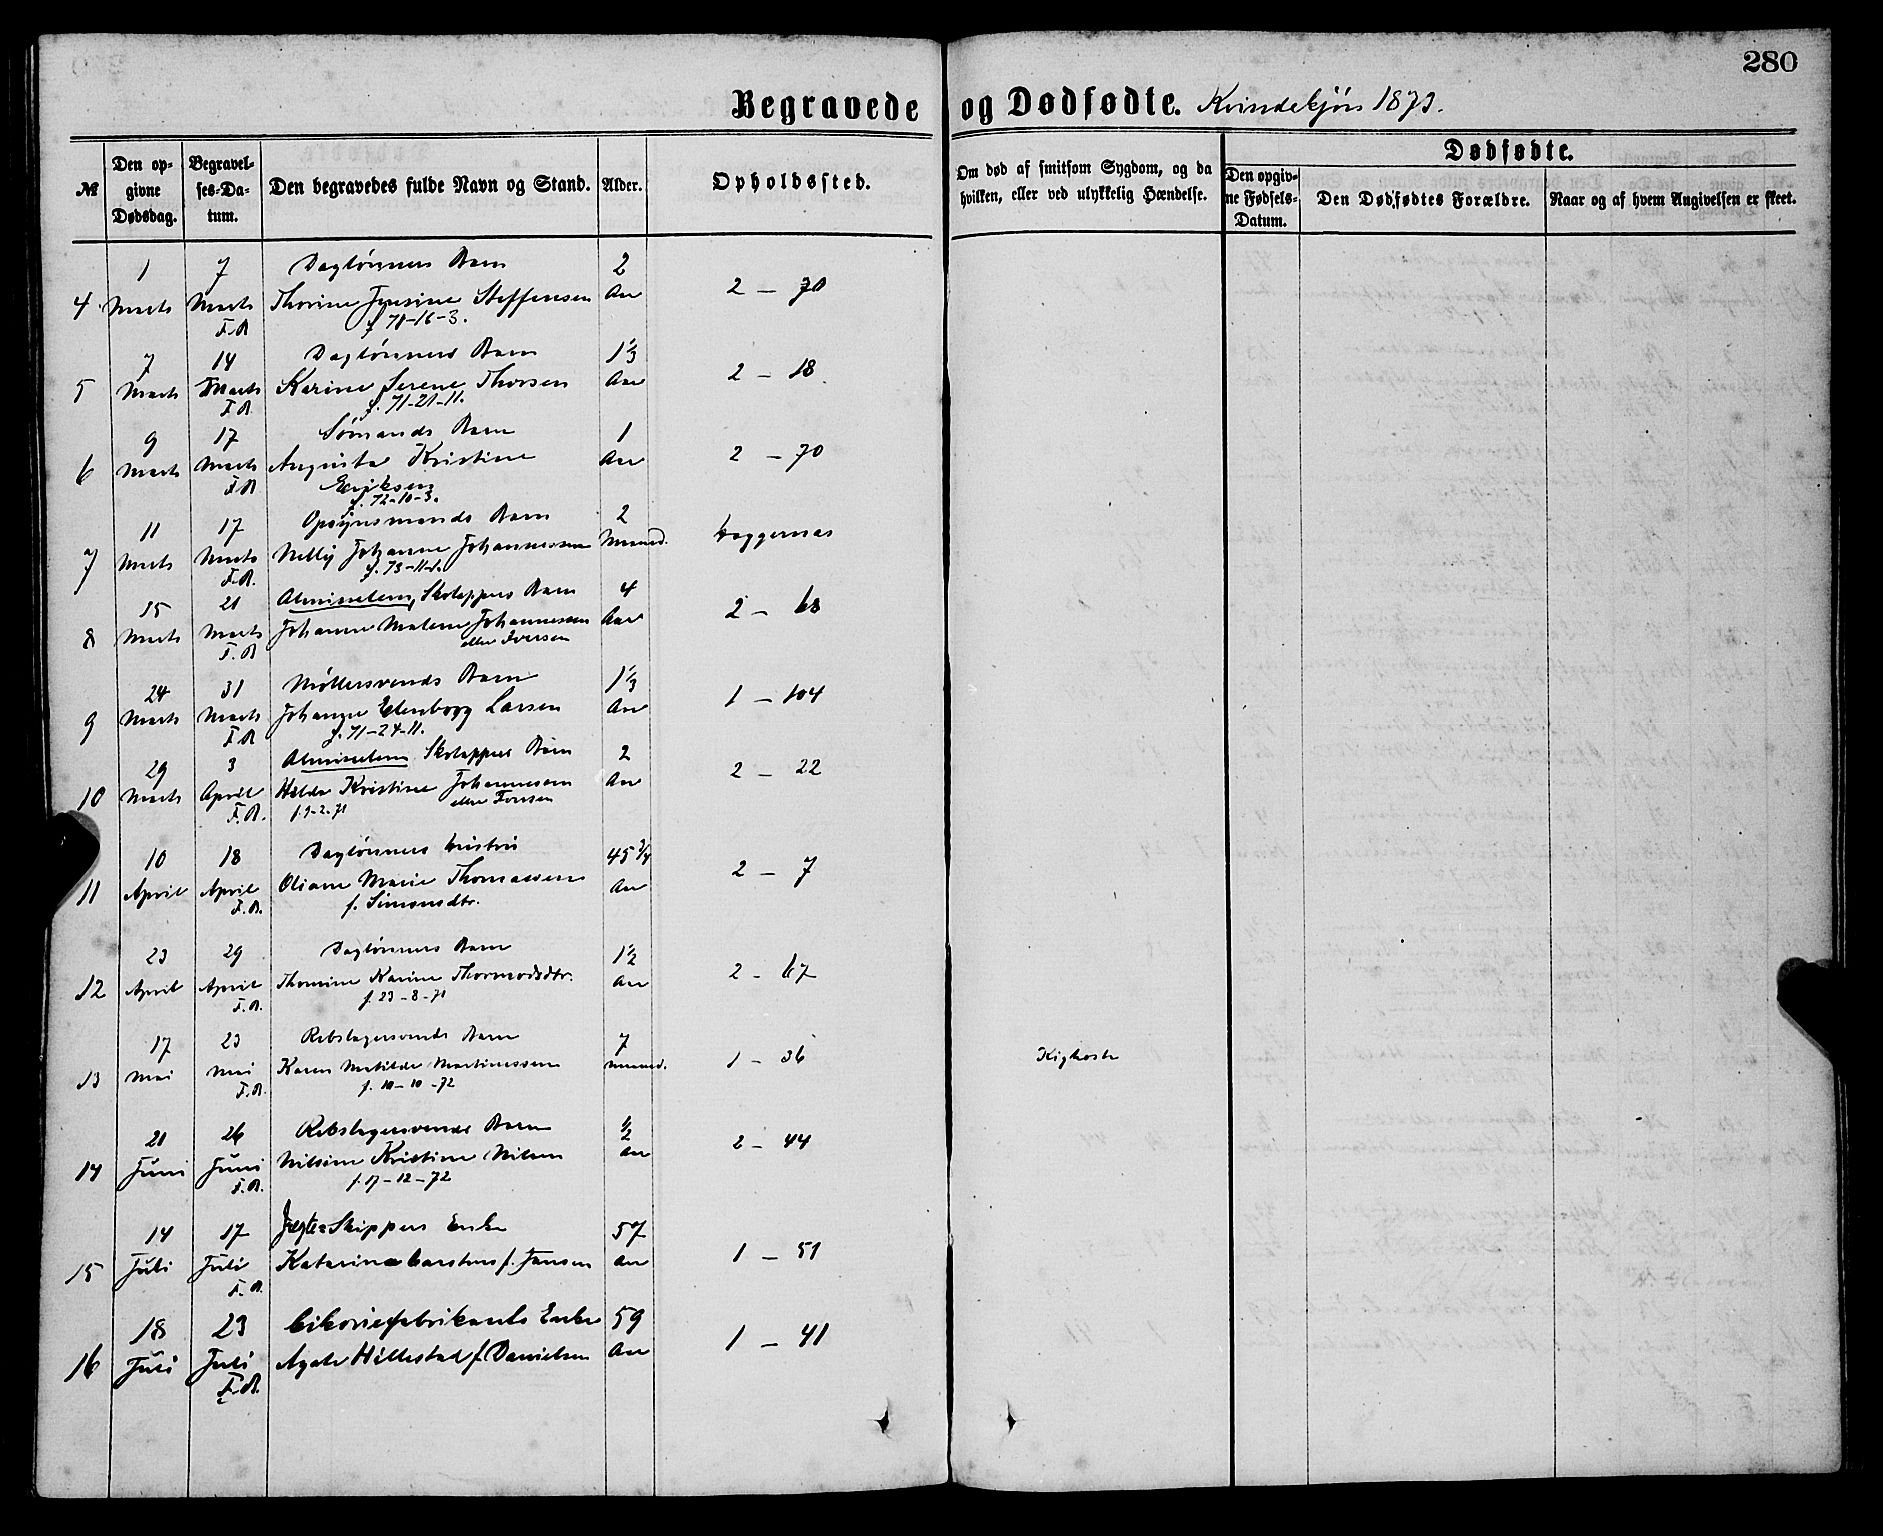 280
Begravede og Dødfødte. Kvindekjøn 1873.
№
Den op-
givne
Dødsdag.
Begravel-
ses-Da-
tum.
Den begravedes fulde Navn og Stand.
Alder.
Opholdssted.
Om død af smitsom Sygdom, og da
hvilken, eller ved ulykkelig Hændelse.
Dødfødte.
Den opgiv-
ne Fødsels-
Datum.
Den Dødfødtes Forældre.
Naar og af hvem Angivelsen er skeet.
1 7 Daglönners Barn 2
4 Marts Marts Thorine Steffensen Aar 2 – 70
F.A. f. 70-16-3.
7 14 Daglönners Barn 1⅓
5 Marts Marts Karine Serene Thorsen Aar 2 – 18
F.A. f. 71-21-11.
9 17 Sömands Barn 1
6 Marts Marts Augusta Kristine Aar 2 – 70
F.A. Eriksen
f. 72-10-3.
11 17 Opsynsmands Barn 2
7 Marts Marts Nelly Johanne Johannessen Maaned.
F.A. f. 73-11-1.
15 21 Almisselem, Skolappers Barn 4
8 Marts Marts Johanne Malene Johannessen Aar 2 – 68
F.A. eller Iversen
24 31 Möllersvends Barn 1⅓
9 Marts Marts Johanne Elenborg Larsen Aar 1 – 104
F.A. f. 71-24-11.
29 3 Almisselem Skolappers Barn 2
10 Marts April Hilda Kristine Johannessen Aar 2 – 22
F.A. f. 9-2-71 eller Iversen
10 18 Daglönners Hustru 45 3/4
11 April April Oliane Marie Thomassen Aar 2 – 7
F.A. f. Simonsdtr.
23 29 Daglönners Barn 1½
12 April April Thomine Karine Thormodsdtr. Aar 2 - 67
F.A. f. 23-8-71
17 23 Rebslagersvends Barn 7
13 Mai Mai Karen Matilde Martinessen Maaned. 1 – 36 Kighoste
F.A. f. 10-10-72
21 26 Rebslagersvends Barn ½
14 Juni Juni Nilsine Kristine Nilsen Aar 2 – 44
F.A. f. 17-12-72
14 17 Jægte Skippers Enke 57
15 Juli Juli Katarina Carstens f. Jansen Aar 1 – 51
F.A.
18 23 Cikoriefabrikants Enke 59
16 Juli Juli Agate Hillestad f. Danielsen Aar 1 – 41
F.A.